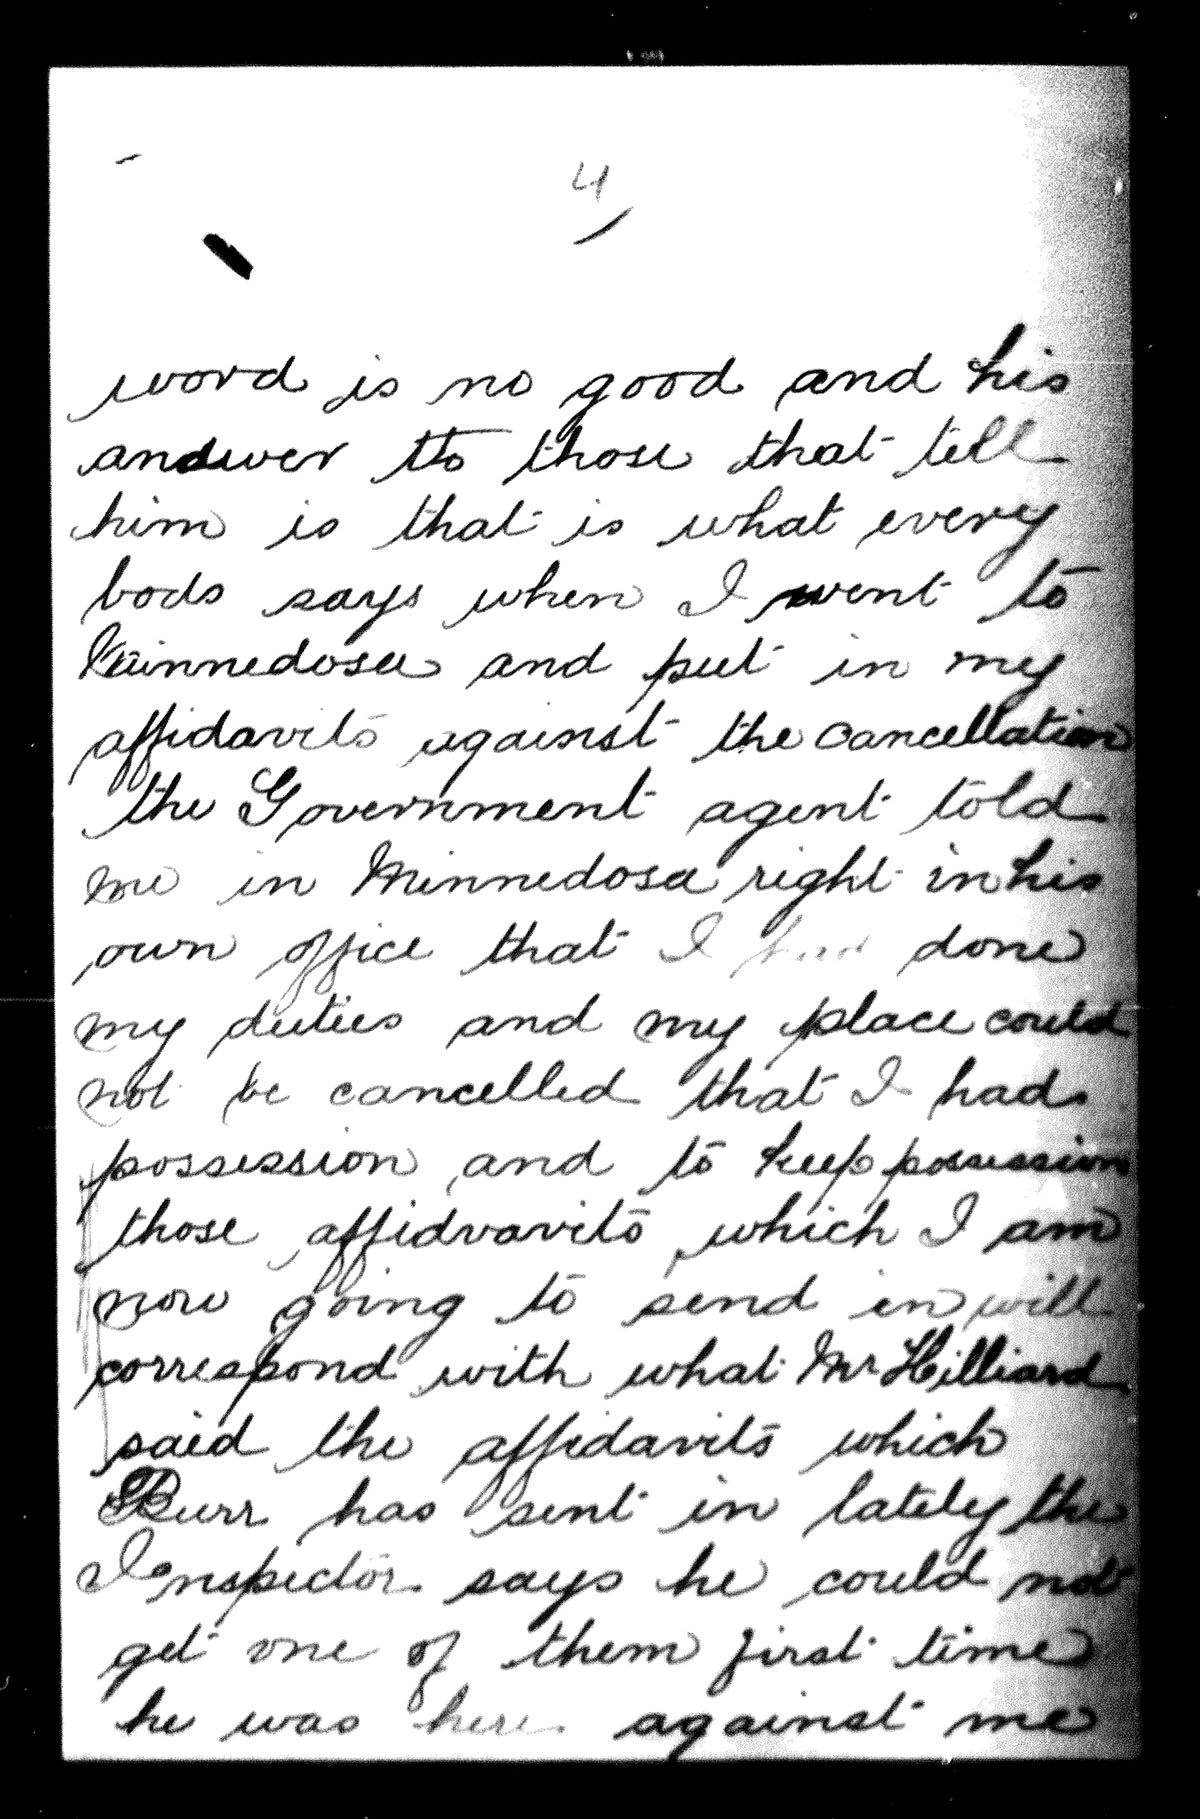 4
word is no good and his
andwer tto those that tell
him is that is what every
bods says when I went to
Minnedosa and put in my
affidavits against the cancellation
the Government agent told
me in Minnedosa right in his
own office that I had done
my duties and my place could
not be cancelled that I had
possession and to keep possession
those affidvavits which I am
now going to send in will
correspond with what Mr Hilliard
said the affidavits which
Burr has sent in lately the
Inspector says he could not
get one of them first time
he was here against me